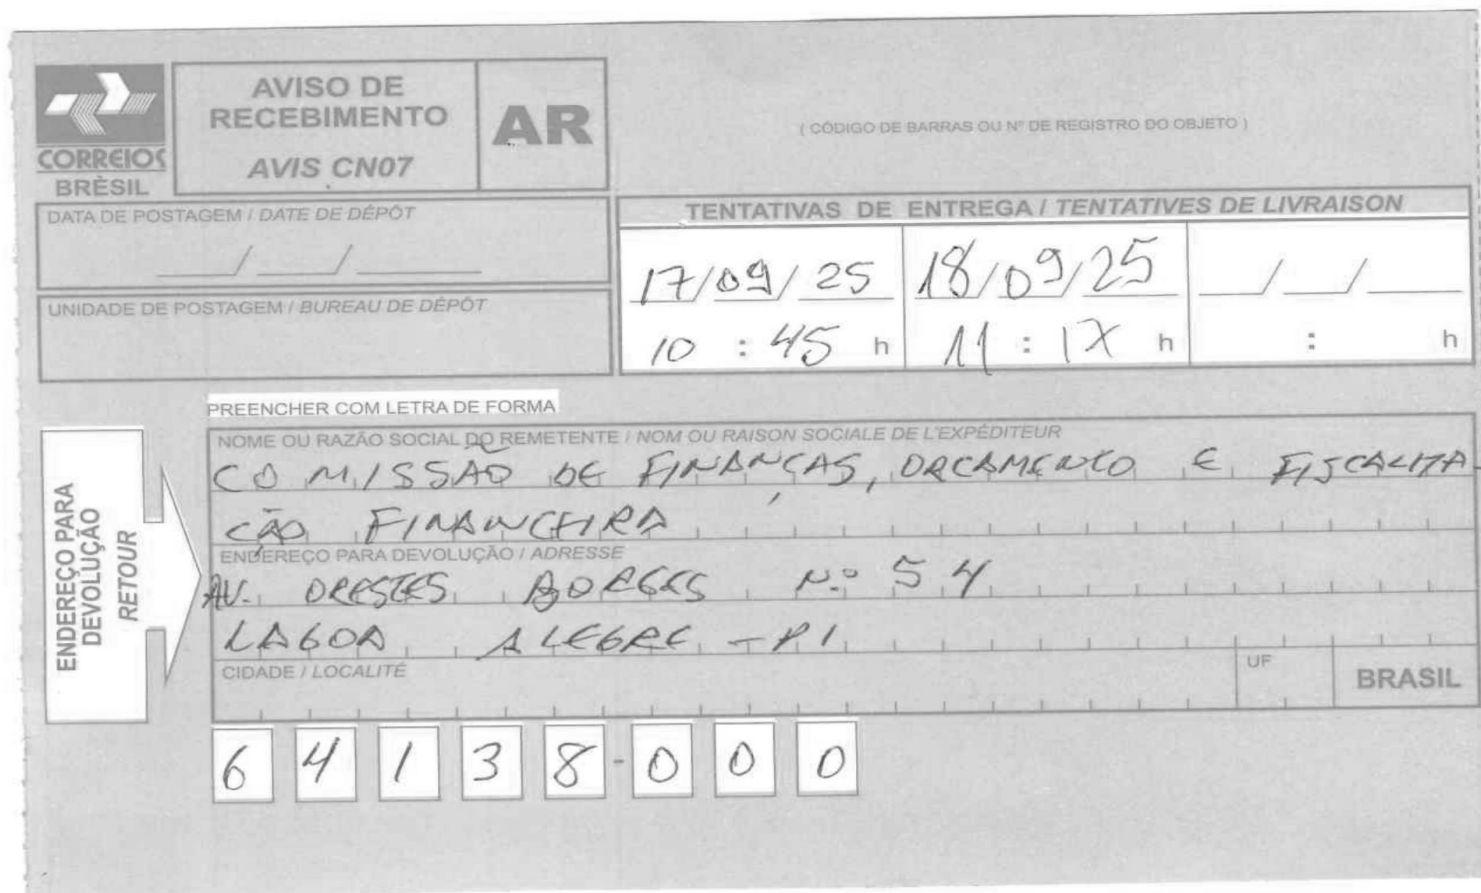 CORREIOS
BRÈSIL
AVISO DE
RECEBIMENTO
AVIS CN07
AR
( CÓDIGO DE BARRAS OU Nº DE REGISTRO DO OBJETO )
DATA DE POSTAGEM / DATE DE DÉPÔT
___/___/___
UNIDADE DE POSTAGEM / BUREAU DE DÉPÔT
TENTATIVAS DE ENTREGA / TENTATIVES DE LIVRAISON
17/09/25 18/09/25 __/__/__
10 : 45 h 11 : 17 h : h
PREENCHER COM LETRA DE FORMA
ENDEREÇO PARA
DEVOLUÇÃO
RETOUR
NOME OU RAZÃO SOCIAL DO REMETENTE / NOM OU RAISON SOCIALE DE L'EXPÉDITEUR
COMISSÃO DE FINANÇAS, ORCAMENTO E FISCALIZA
ÇÃO FINANCEIRA
ENDEREÇO PARA DEVOLUÇÃO / ADRESSE
AV. ORESTES BORGES Nº 54
LAGOA ALEGRE - PI
CIDADE / LOCALITÉ
UF
BRASIL
64138-000